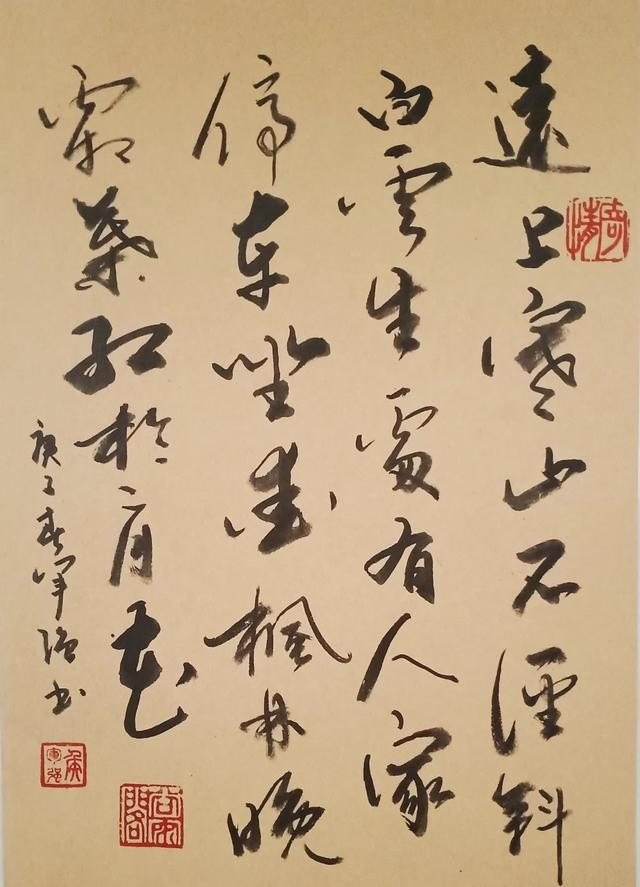 遠上寒山石徑斜
白雲生處有人家
停車坐愛楓林晚
霜葉紅於二月花
庚子春軍強书